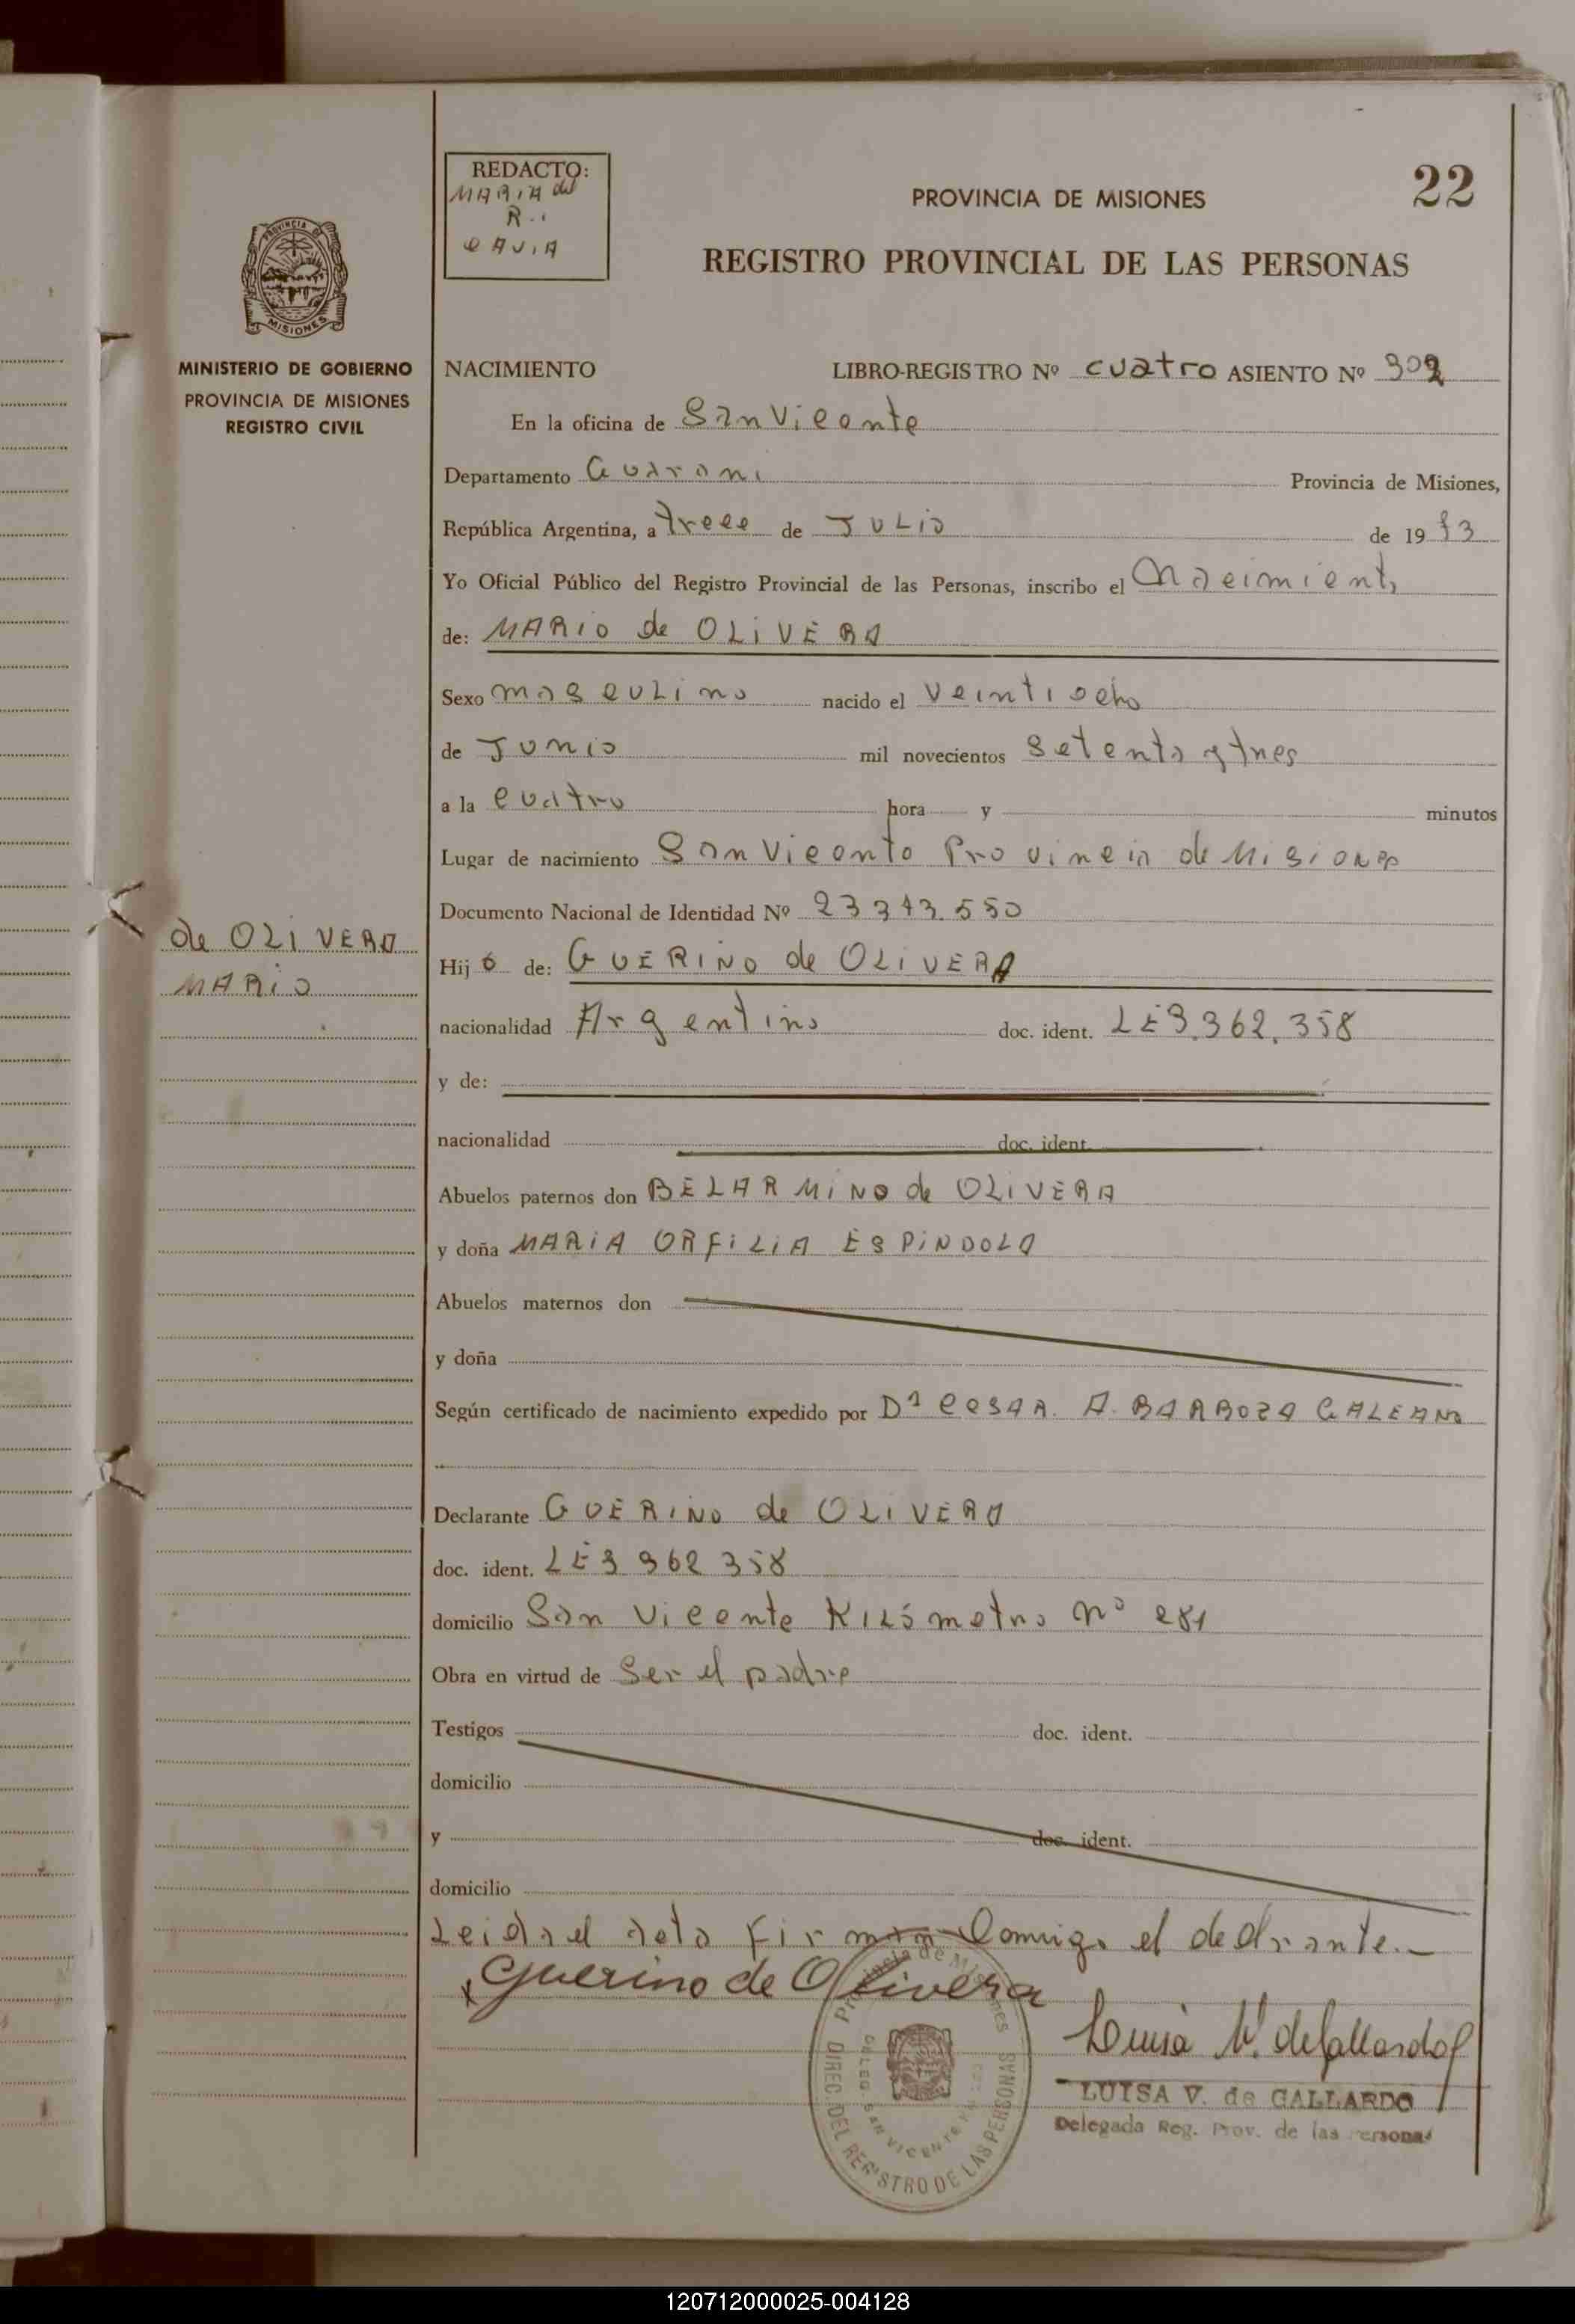 22
REDACTO:
MARIA del
R.
CAVIA
PROVINCIA DE MISIONES
REGISTRO PROVINCIAL DE LAS PERSONAS
PROVINCIA DE
MISIONES
MINISTERIO DE GOBIERNO
PROVINCIA DE MISIONES
REGISTRO CIVIL
NACIMIENTO LIBRO-REGISTRO Nº cuatro ASIENTO Nº 302
En la oficina de San Vicente
Departamento Guarani Provincia de Misiones,
República Argentina, a trece de JULIO de 1973
Yo Oficial Público del Registro Provincial de las Personas, inscribo el Nacimiento
de: MARIO de OLIVERA
Sexo masculino nacido el veintiocho
de Junio mil novecientos setenta y tres
a la cuatro hora y minutos
Lugar de nacimiento San Vicente Provincia de Misiones
Documento Nacional de Identidad Nº 23.343.550
de OLIVERA
MARIO
Hijo de: GUERINO de OLIVERA
nacionalidad Argentino doc. ident. LE3.362.358
y de:
nacionalidad doc. ident.
Abuelos paternos don BELARMINO de OLIVERA
y doña MARIA ORFILIA ESPINDOLA
Abuelos maternos don
y doña
Según certificado de nacimiento expedido por Dr CESAR. A. BARBOZA GALEANO
Declarante GUERINO de OLIVERA
doc. ident. LE3 362 358
domicilio San Vicente Kilómetro nº 281
Obra en virtud de ser el padre
Testigos doc. ident.
domicilio
y doc. ident.
domicilio
Leida el acta firman Comigo el declarante.—
Guerino de Olivera
Luisa V. de Gallardo
LUISA V. de GALLARDO
Delegada Reg. Prov. de las Personas
Provincia de Misiones
DIREC. DEL REGISTRO DE LAS PERSONAS
DELEG. SAN VICENTE
120712000025-004128